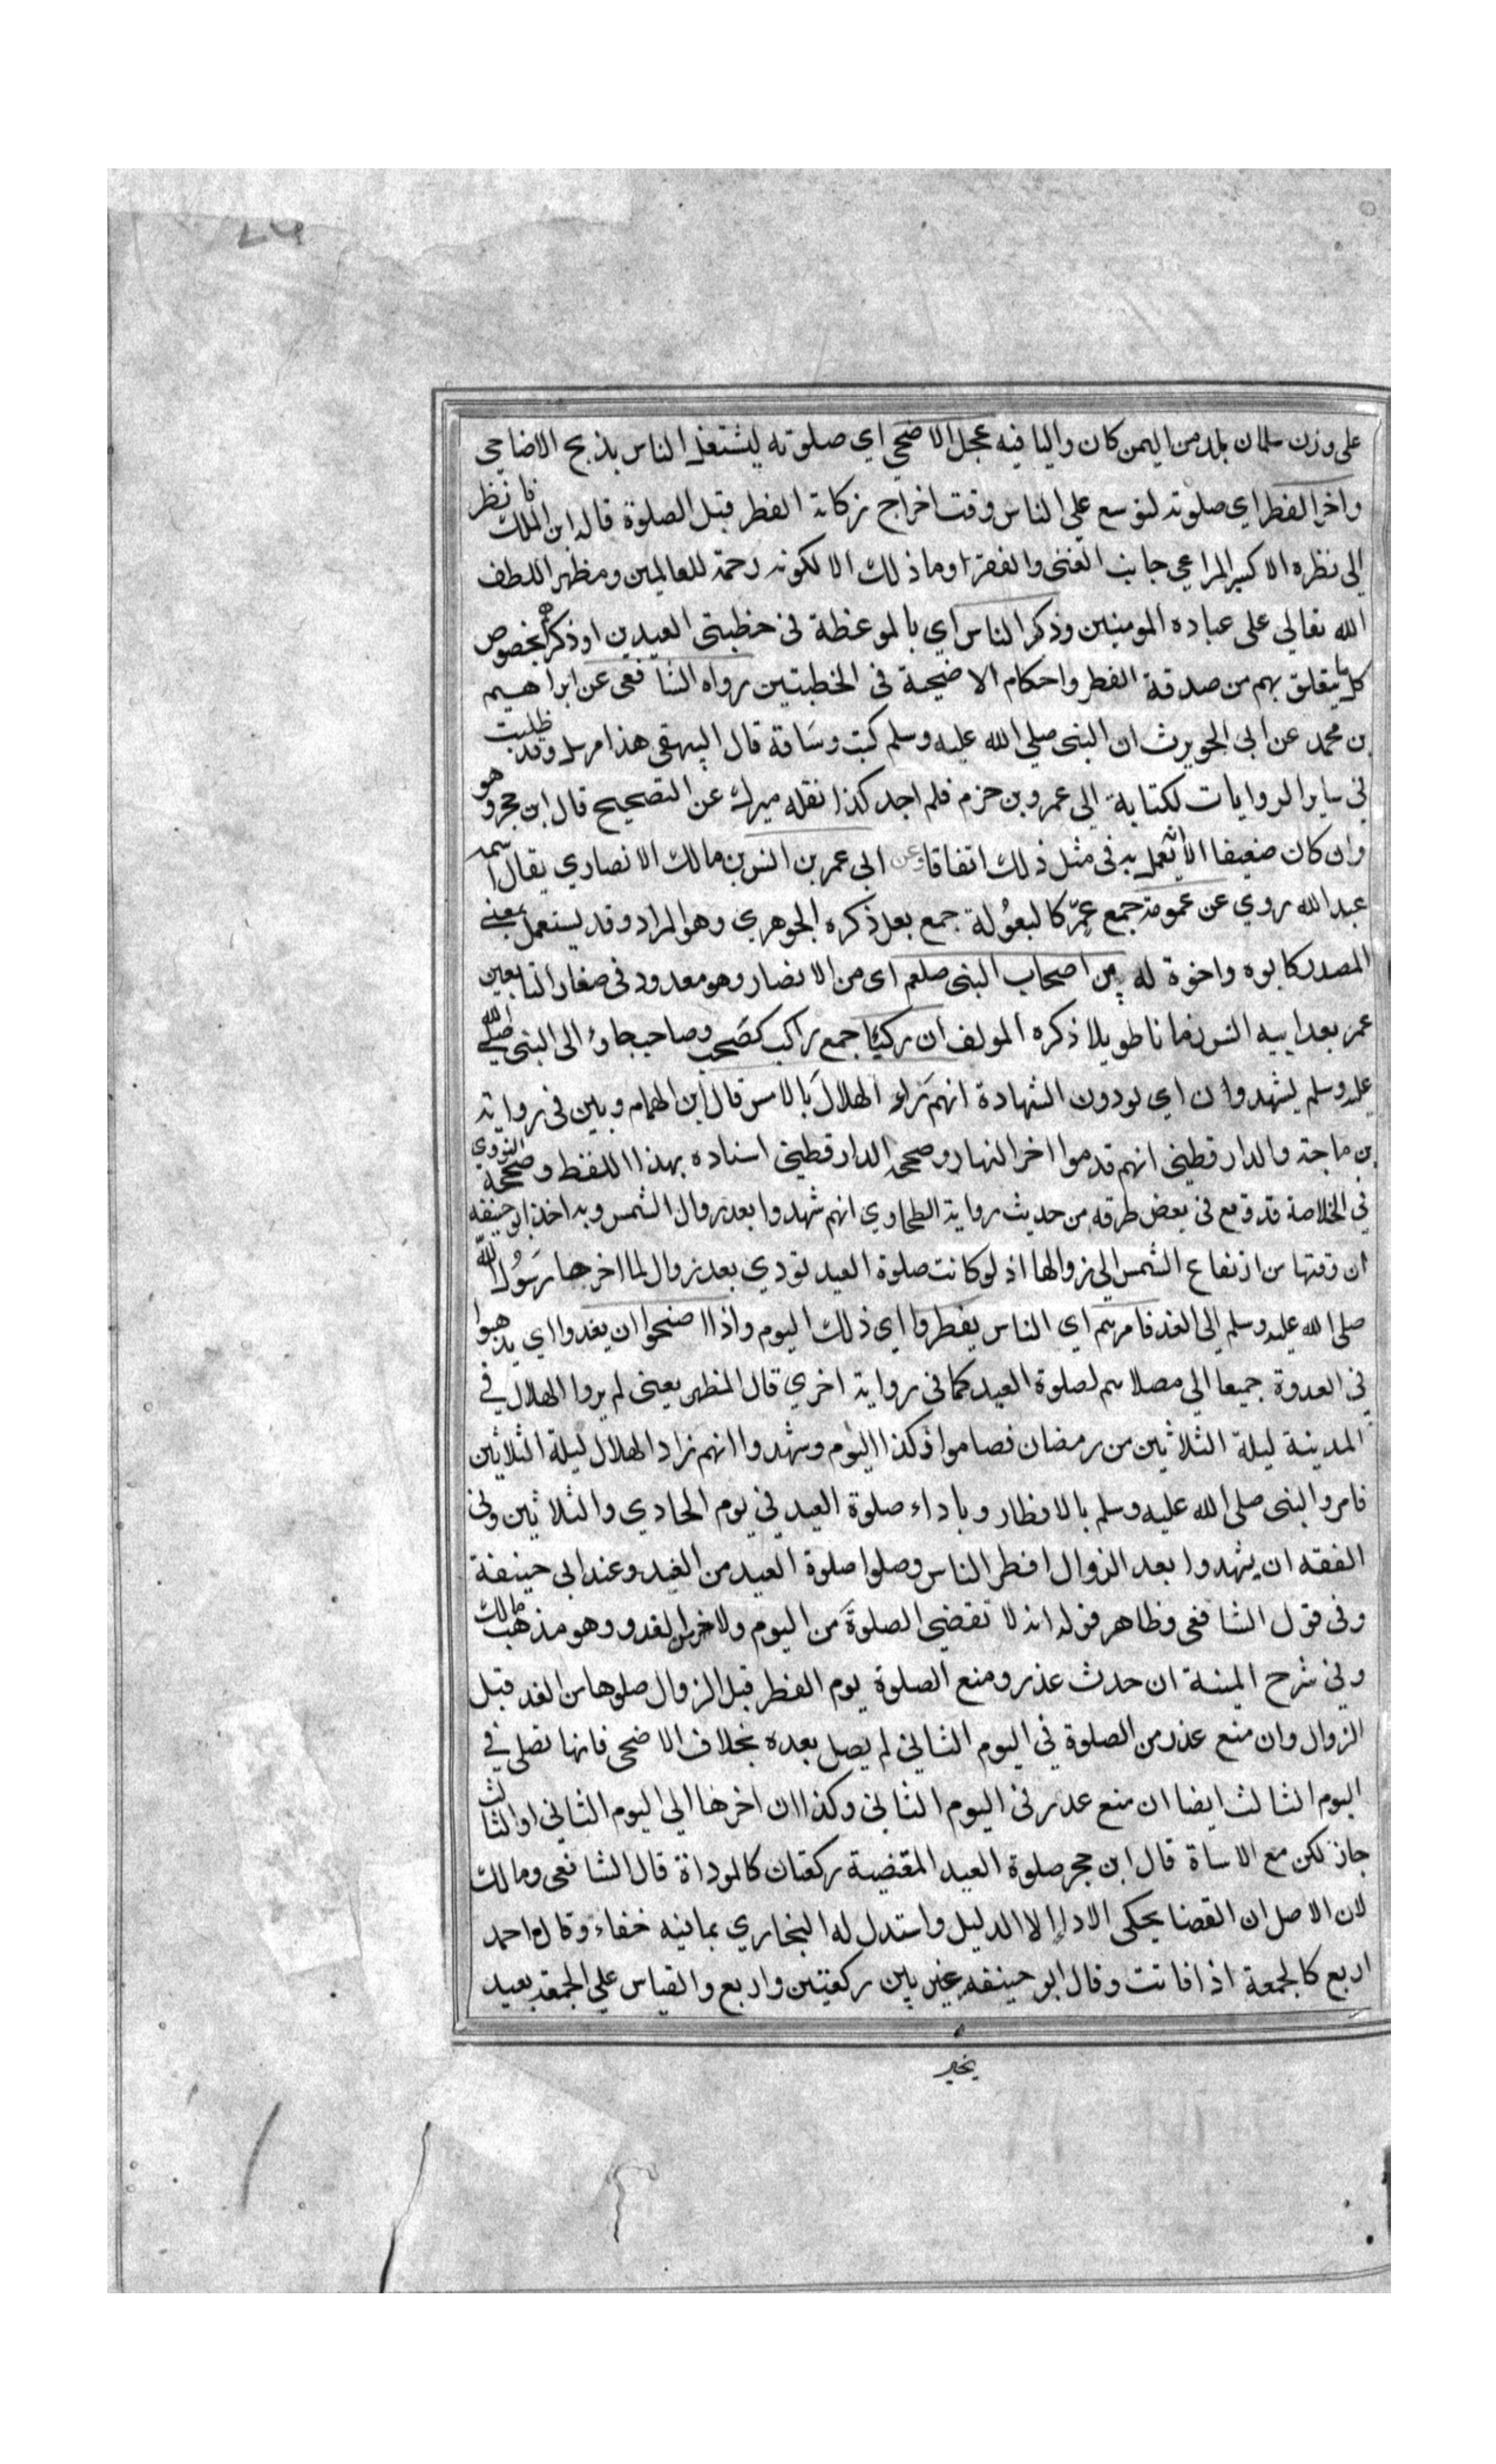 على وزن سلمان بلد من اليمن كان واليا فيه عجل الاضحي اي صلوته ليشتغل الناس بذبح الاضاحي
واخر الفطر اي صلوته لتوسع علي الناس وقت اخراج زكاة الفطر قبل الصلوة قاله ابن الملك فانظر
الى نظره الاكسير المراعي جانب الغنى والفقرا وما ذلك الا لكونه رحمة للعالمين ومظهر اللطف
الله تعالي على عباده المومنين وذكر الناس اي بالموعظة في خطبتي العيدين او ذكرهم بخصوص
كل ما يتعلق بهم من صدقة الفطر واحكام الاضحية في الخطبتين رواه الشافعي عن ابراهيم
بن محمد عن ابى الحويرث ان النبى صلي الله عليه وسلم كتب وساقة قال البيهقي هذا مرسل وقد طلبت
في ساير الروايات لكتابة الى عمرو بن حزم فلم اجد كذا نقله ميرك عن التصحيح قال ابن حجر وهو
وان كان ضعيفا الا انه يعمل به في مثل ذلك اتفاقا وعن ابى عمر بن انس بن مالك الانصاري يقال اسمه
عبد الله روي عن عمومة جمع عم كالبعولة جمع بعل ذكره الجوهري وهو المراد وقد يستعمل بمعنى
المصدر كابوه واخوة له من اصحاب النبى صلعم اى من الانصار وهو معدود فى صغار التابعين
عمر بعد ابيه انس زمانا طويلا ذكره المولف ان ركبا جمع راكب كصحب وصاحب جاؤ الى النبى صلي الله
عليه وسلم يشهدوا ن اي يودون الشهادة انهم راو الهلال بالامس قال ابن الهمام وبين في رواية
بن ماجة والدارقطنى انهم قدموا اخر النهار وصحح الدارقطنى اسناده بهذا اللفظ وصححه النووي
في الخلاصة قد وقع في بعض طرقه من حديث رواية الطحاوي انهم شهدوا بعد زوال الشمس وبه اخذ ابو حنيفه
ان وقتها من ارتفاع الشمس الي زوالها اذ لو كانت صلوة العيد تودي بعد زوال لما اخرها رسول الله
صلى الله عليه وسلم الي الغد فامرهم اي الناس يفطروا اي ذلك اليوم واذا اصبحوا ان يغدوا اي يذهبوا
في الغدوة جميعا الى مصلاهم لصلوة العيد كما في رواية اخري قال المظهر يعنى لم يروا الهلال في
المدينة ليلة الثلاثين من رمضان فصاموا ذكذا اليوم وشهدوا انهم راد الهلال ليلة الثلاثين
فامروا النبى صلى الله عليه وسلم بالافطار وباداء صلوة العيد في يوم الحادي والثلاثين وفى
الفقه ان يشهدوا بعد الزوال افطر الناس وصلوا صلوة العيد من الغد وعند ابى حنيفة
وفى قول الشافعى وظاهر قوله انه لا تقضي الصلوة من اليوم ولا من الغد وهو مذهب مالك
وفي شرح المنية ان حدث عذر ومنع الصلوة يوم الفطر قبل الزوال صلوها من الغد قبل
الزوال وان منع عذر من الصلوة في اليوم الثاني لم يصل بعده بخلاف الاضحى فانها تصلى في
اليوم الثالث ايضا ان منع عذر فى اليوم الثانى وكذا ان اخرها الي اليوم الثاني او الثالث
جاز لكن مع الاساة قال ابن حجر صلوة العيد المقضية ركعتان كالموداة قال الشافعى ومالك
لان الاصل ان القضا يحكى الادا الا الدليل واستدل له البخاري بما فيه خفاء وقال احمد
اربع كالجمعة اذا فاتت وقال ابو حنيفه غير بين ركعتين واربع والقياس علي الجمعة بعيد
يخير